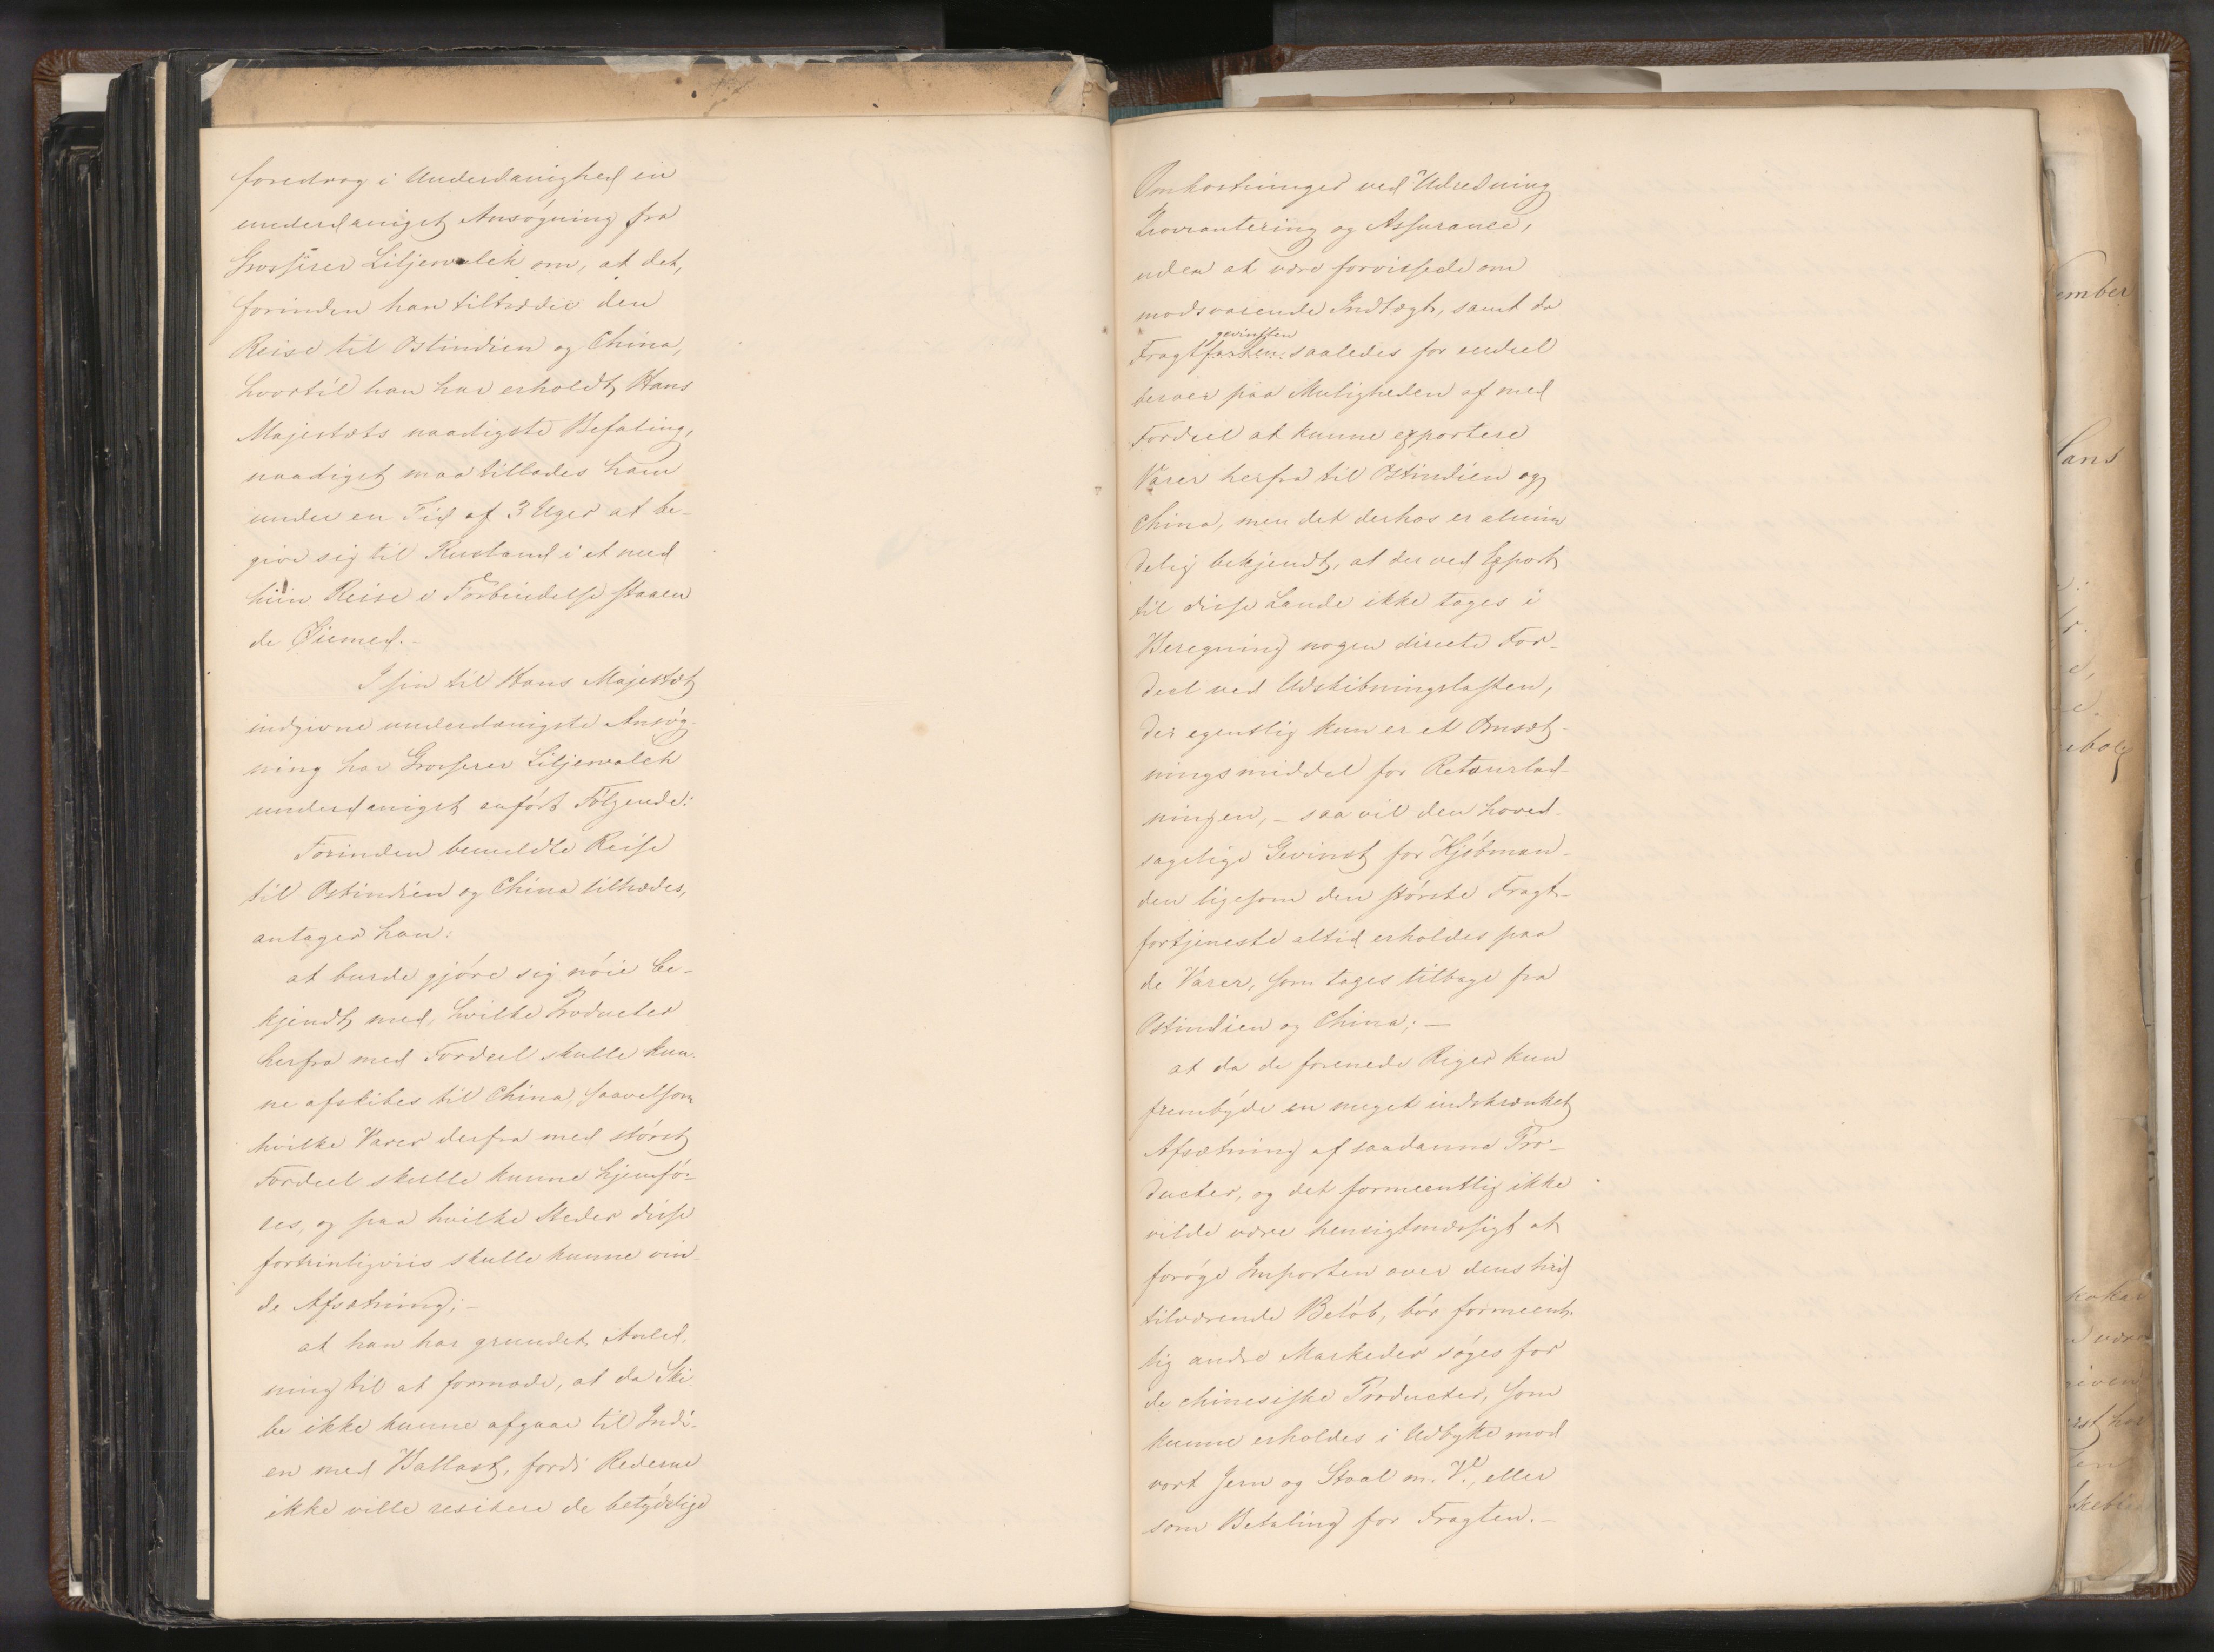 foredrog i Underdanighed en
underdanigst Ansøgning fra
Grosserer Liljewalch om, at det,
forinden han tiltræder den
Reise til Ostindien og China,
hvortil han har erholdt Hans
Majestæts naadigste Befaling,
naadigst maa tillades ham
under en Tid af 3 Uger at be-
give sig til Rusland i et med
hiin Reise i Forbindelse staaen
de Øiemed.-
I sin til Hans Majestæt
indgivne underdanigste Ansøg-
ning har Grosserer Liljewalch
underdanigst anført Følgende:
Forinden bemeldte Reise
til Ostindien og China tiltrædes,
antager han:
at burde gjøre sig nøie be-
kjendt med, hvilke Producter
herfra med Fordeel skulle kun-
ne afskibes til China, saavelsom
hvilke Varer derfra med størst
Fordeel skulle kunne hjemfø-
res, og paa hvilke Steder disse
fortrinligviis skulle kunne vin-
de Afsætning; -
at han har grundet Anled-
ning til at formode, at da Ski
be ikke kunne afgaae til Indi-
en med Ballast, fordi Rederne
ikke ville resikere de betydelige
Omkostninger ved Udredning
Proviantering og Assurance,
uden at være forvissede om
modsvarende Indtægt, samt da
gevinsten
Fragtfarten saaledes for endeel
beroer paa Muligheden af med
Fordeel at kunne exportere
Varer herfra til Ostindien og
China, men det derhos er almin
delig bekjendt, at der ved Export
til disse Lande ikke tages i
Beregning nogen directe For-
deel ved Udskibningslasten,
der egentlig kun er et Omsæt-
ningsmiddel for Retourlad-
ningen, - saa vil den hoved-
sagelige Gevinst for Kjøbman-
den ligesom den største Fragt-
fortjeneste altid erholdes paa
de Varer, som tages tilbage fra
Ostindien og China; -
at da de forenede Riger kun
frembyde en meget indskrænket
Afsætning af saadanne Pro-
ducter, og det formeentlig ikke
vilde være hensigtmæssigt at
forøge Importen over dens hid
tilværende Beløb, bør formeent-
lig andre Markeder søges for
de chinesiske Producter, som
kunne erholdes i Udbytte mod
vort Jern og Staal m. V., eller
som Betaling for Fragten.-